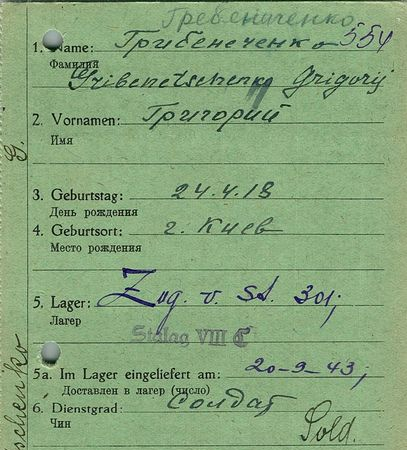 Гребениченко
1. Name: Грибенеченко 554
Фамилия
Gribenetschenko Grigorij
2. Vornamen: Григорий
Имя
3. Geburtstag: 24.4.18
День рождения
4. Geburtsort: г. Киев
Место рождения
5. Lager: Zug. v. St. 301;
Лагер
Stalag VIII C
5a. Im Lager eingeliefert am: 20-9-43;
Доставлен в лагер (число)
6. Dienstgrad: Солдат
Чин
Sold.
G.
schenko